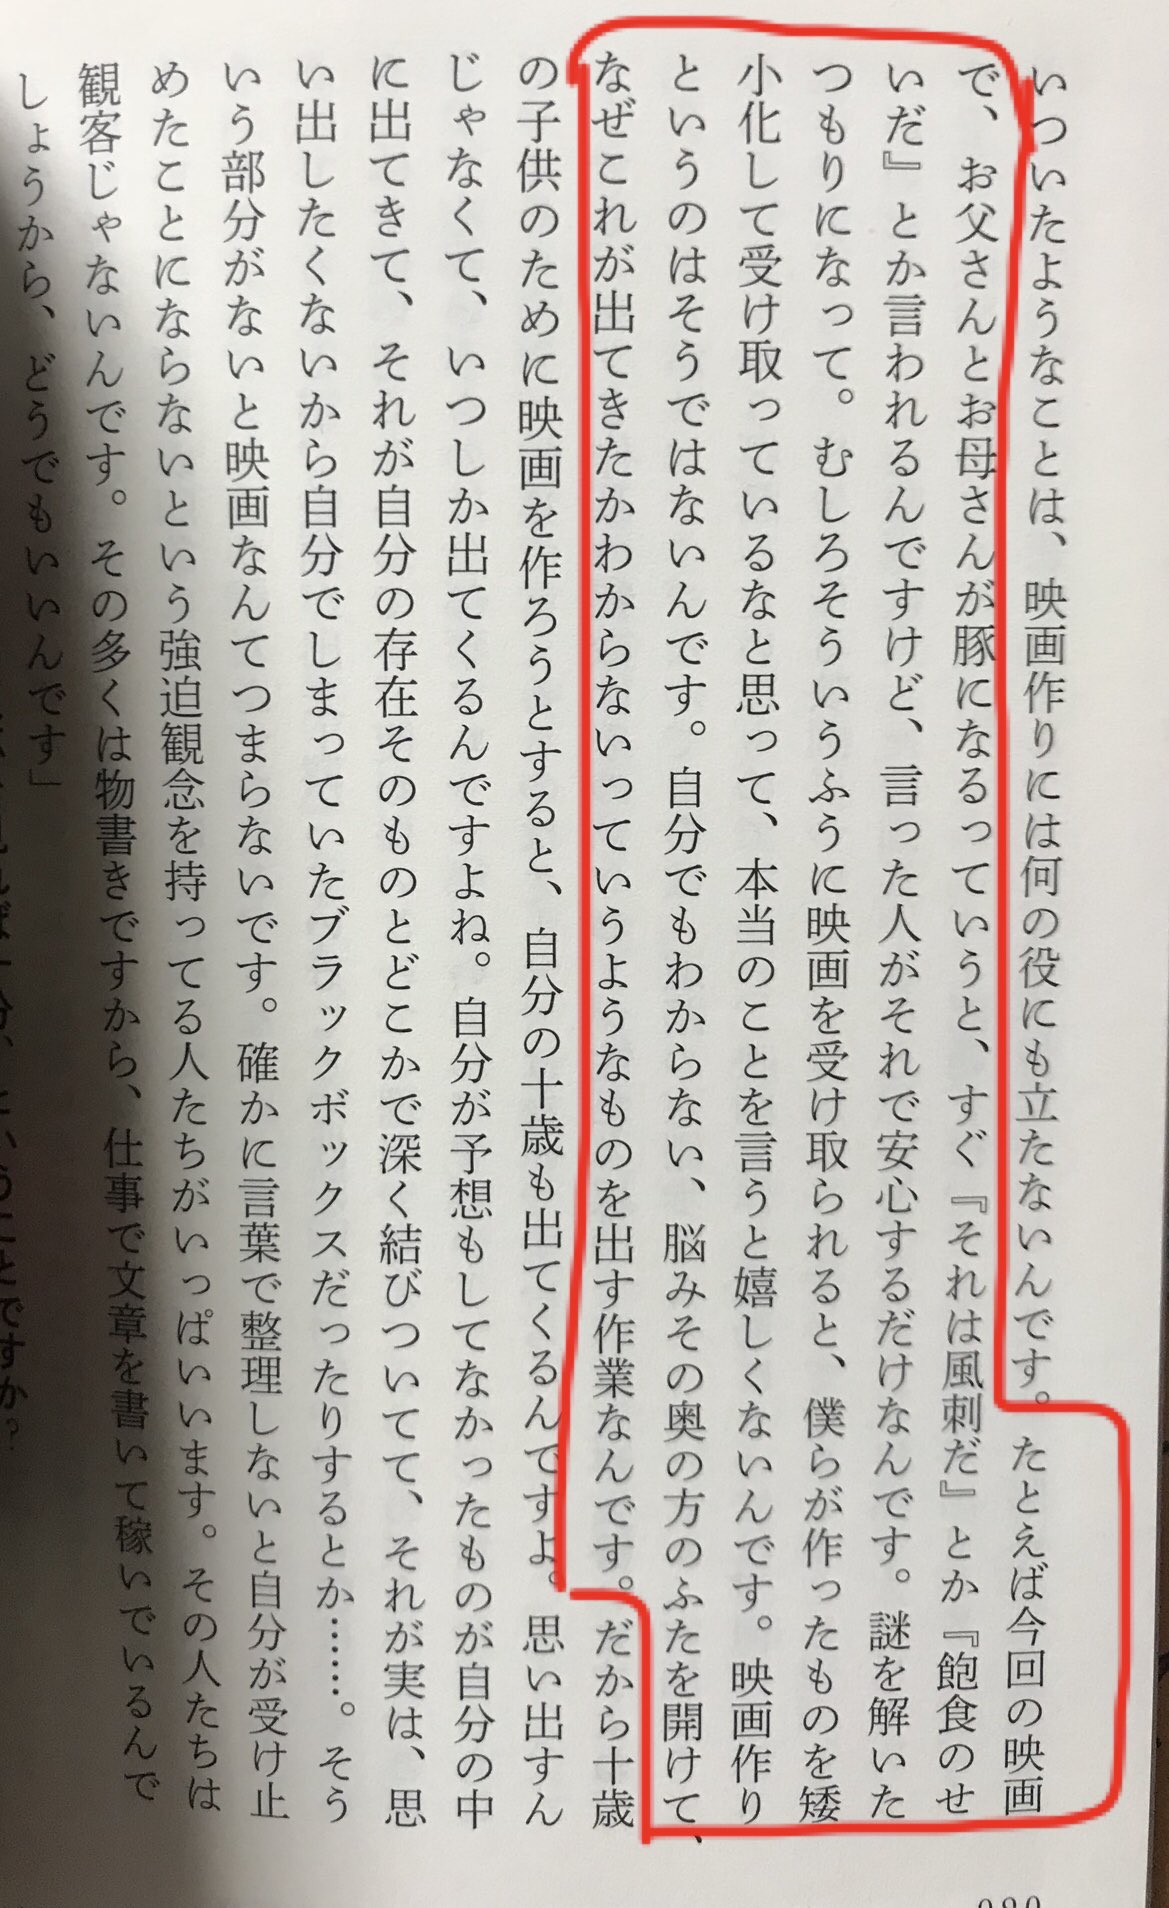 いついたようなことは、映画作りには何の役にも立たないんです。たとえば今回の映画
で、お父さんとお母さんが豚になるっていうと、すぐ『それは風刺だ』とか『飽食のせ
いだ』とか言われるんですけど、言った人がそれで安心するだけなんです。謎を解いた
つもりになって。むしろそういうふうに映画を受け取られると、僕らが作ったものを矮
小化して受け取っているなと思って、本当のことを言うと嬉しくないんです。映画作り
というのはそうではないんです。自分でもわからない、脳みその奥の方のふたを開けて、
なぜこれが出てきたかわからないっていうようなものを出す作業なんです。だから十歳
の子供のために映画を作ろうとすると、自分の十歳も出てくるんですよ。思い出すん
じゃなくて、いつしか出てくるんですよね。自分が予想もしてなかったものが自分の中
に出てきて、それが自分の存在そのものとどこかで深く結びついてて、それが実は、思
い出したくないから自分でしまっていたブラックボックスだったりするとか……。そう
いう部分がないと映画なんてつまらないです。確かに言葉で整理しないと自分が受け止
めたことにならないという強迫観念を持ってる人たちがいっぱいいます。その人たちは
観客じゃないんです。その多くは物書きですから、仕事で文章を書いて稼いでいるんで
しょうから、どうでもいいんです」
ということですか?